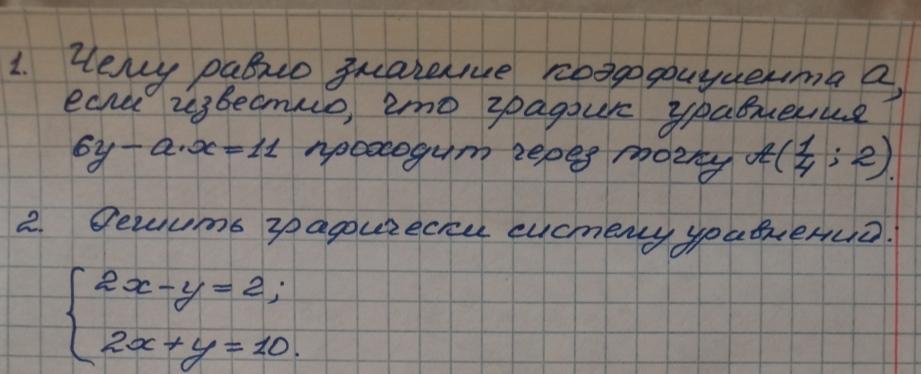 1. Чему равно значение коэффициента a,
если известно, что график уравнения
6y - a·x = 11 проходит через точку A(1/4; 2).
2. Решить графически систему уравнений:
2x - y = 2;
2x + y = 10.